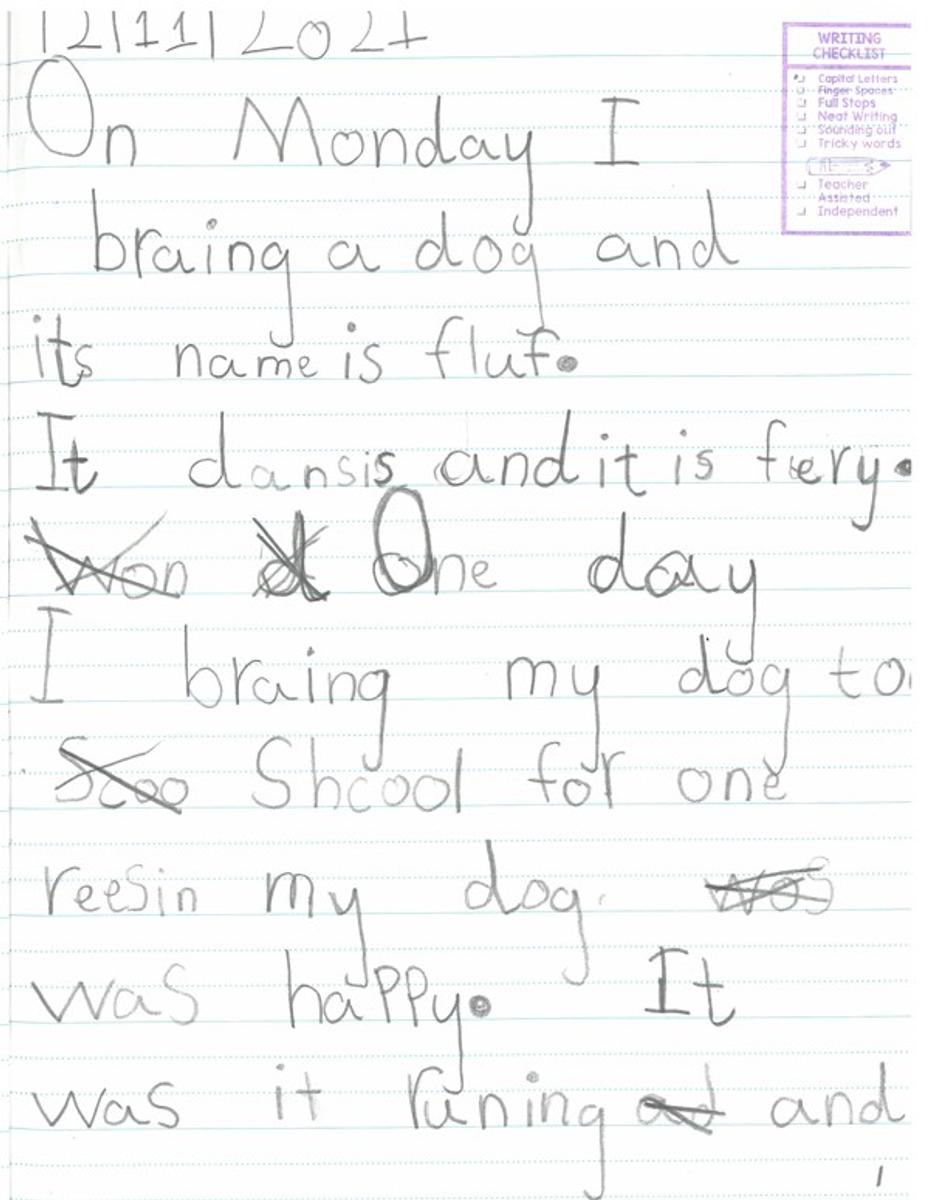 12/11/2021
WRITING
CHECKLIST
Capital Letters
Finger Spaces
Full Stops
Neat Writing
Sounding out
Tricky words
Teacher
Assisted
Independent
On Monday I
braing a dog and
its name is fluf.
It dansis and it is fiery.
Won d One day
I braing my dog to
Scoo Shcool for one
reesin my dog was
was happy. It
was it runing ad and
1